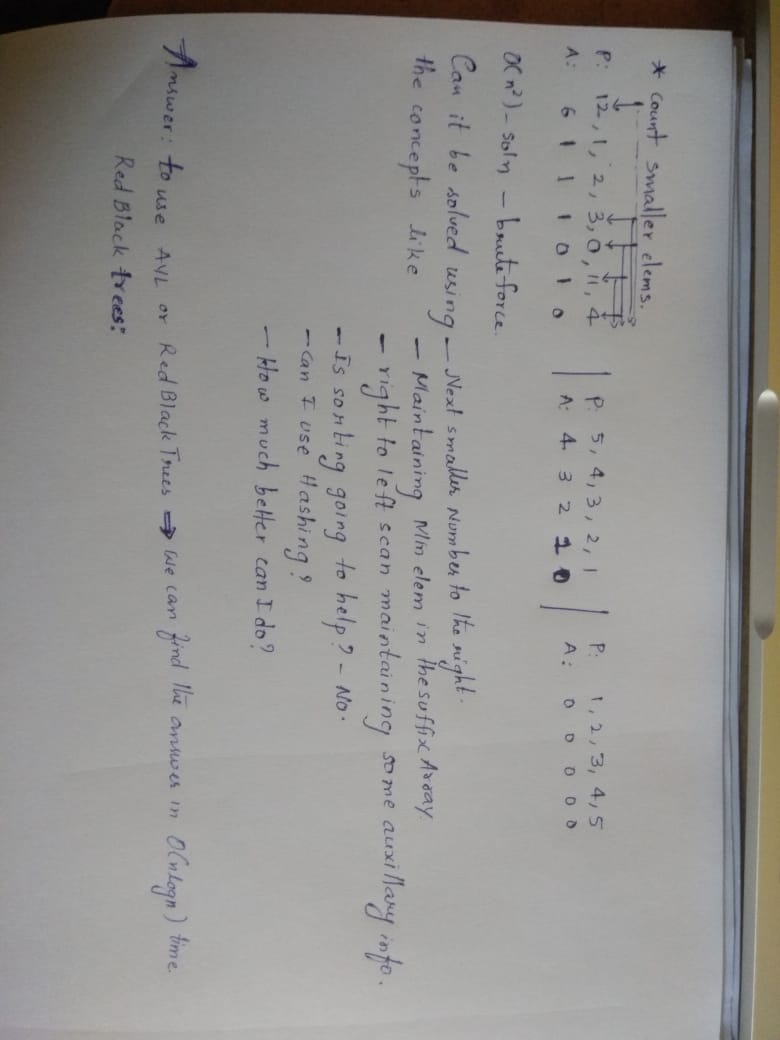 * Count smaller elems.
P: 12, 1, 2, 3, 0, 11, 4 | P: 5, 4, 3, 2, 1 | P: 1, 2, 3, 4, 5
A: 6 1 1 1 0 1 0 | A: 4 3 2 1 0 | A: 0 0 0 0 0
O(n²) - soln - bruteforce.
Can it be solved using - Next smaller Number to the right.
the concepts like - Maintaining Min elem in the suffix Array.
- right to left scan maintaining some auxillary info.
- Is sorting going to help? - No.
- Can I use Hashing?
- How much better can I do?
Answer: to use AVL or Red Black Trees ⇒ we can find the answer in O(nlogn) time.
Red Black trees: